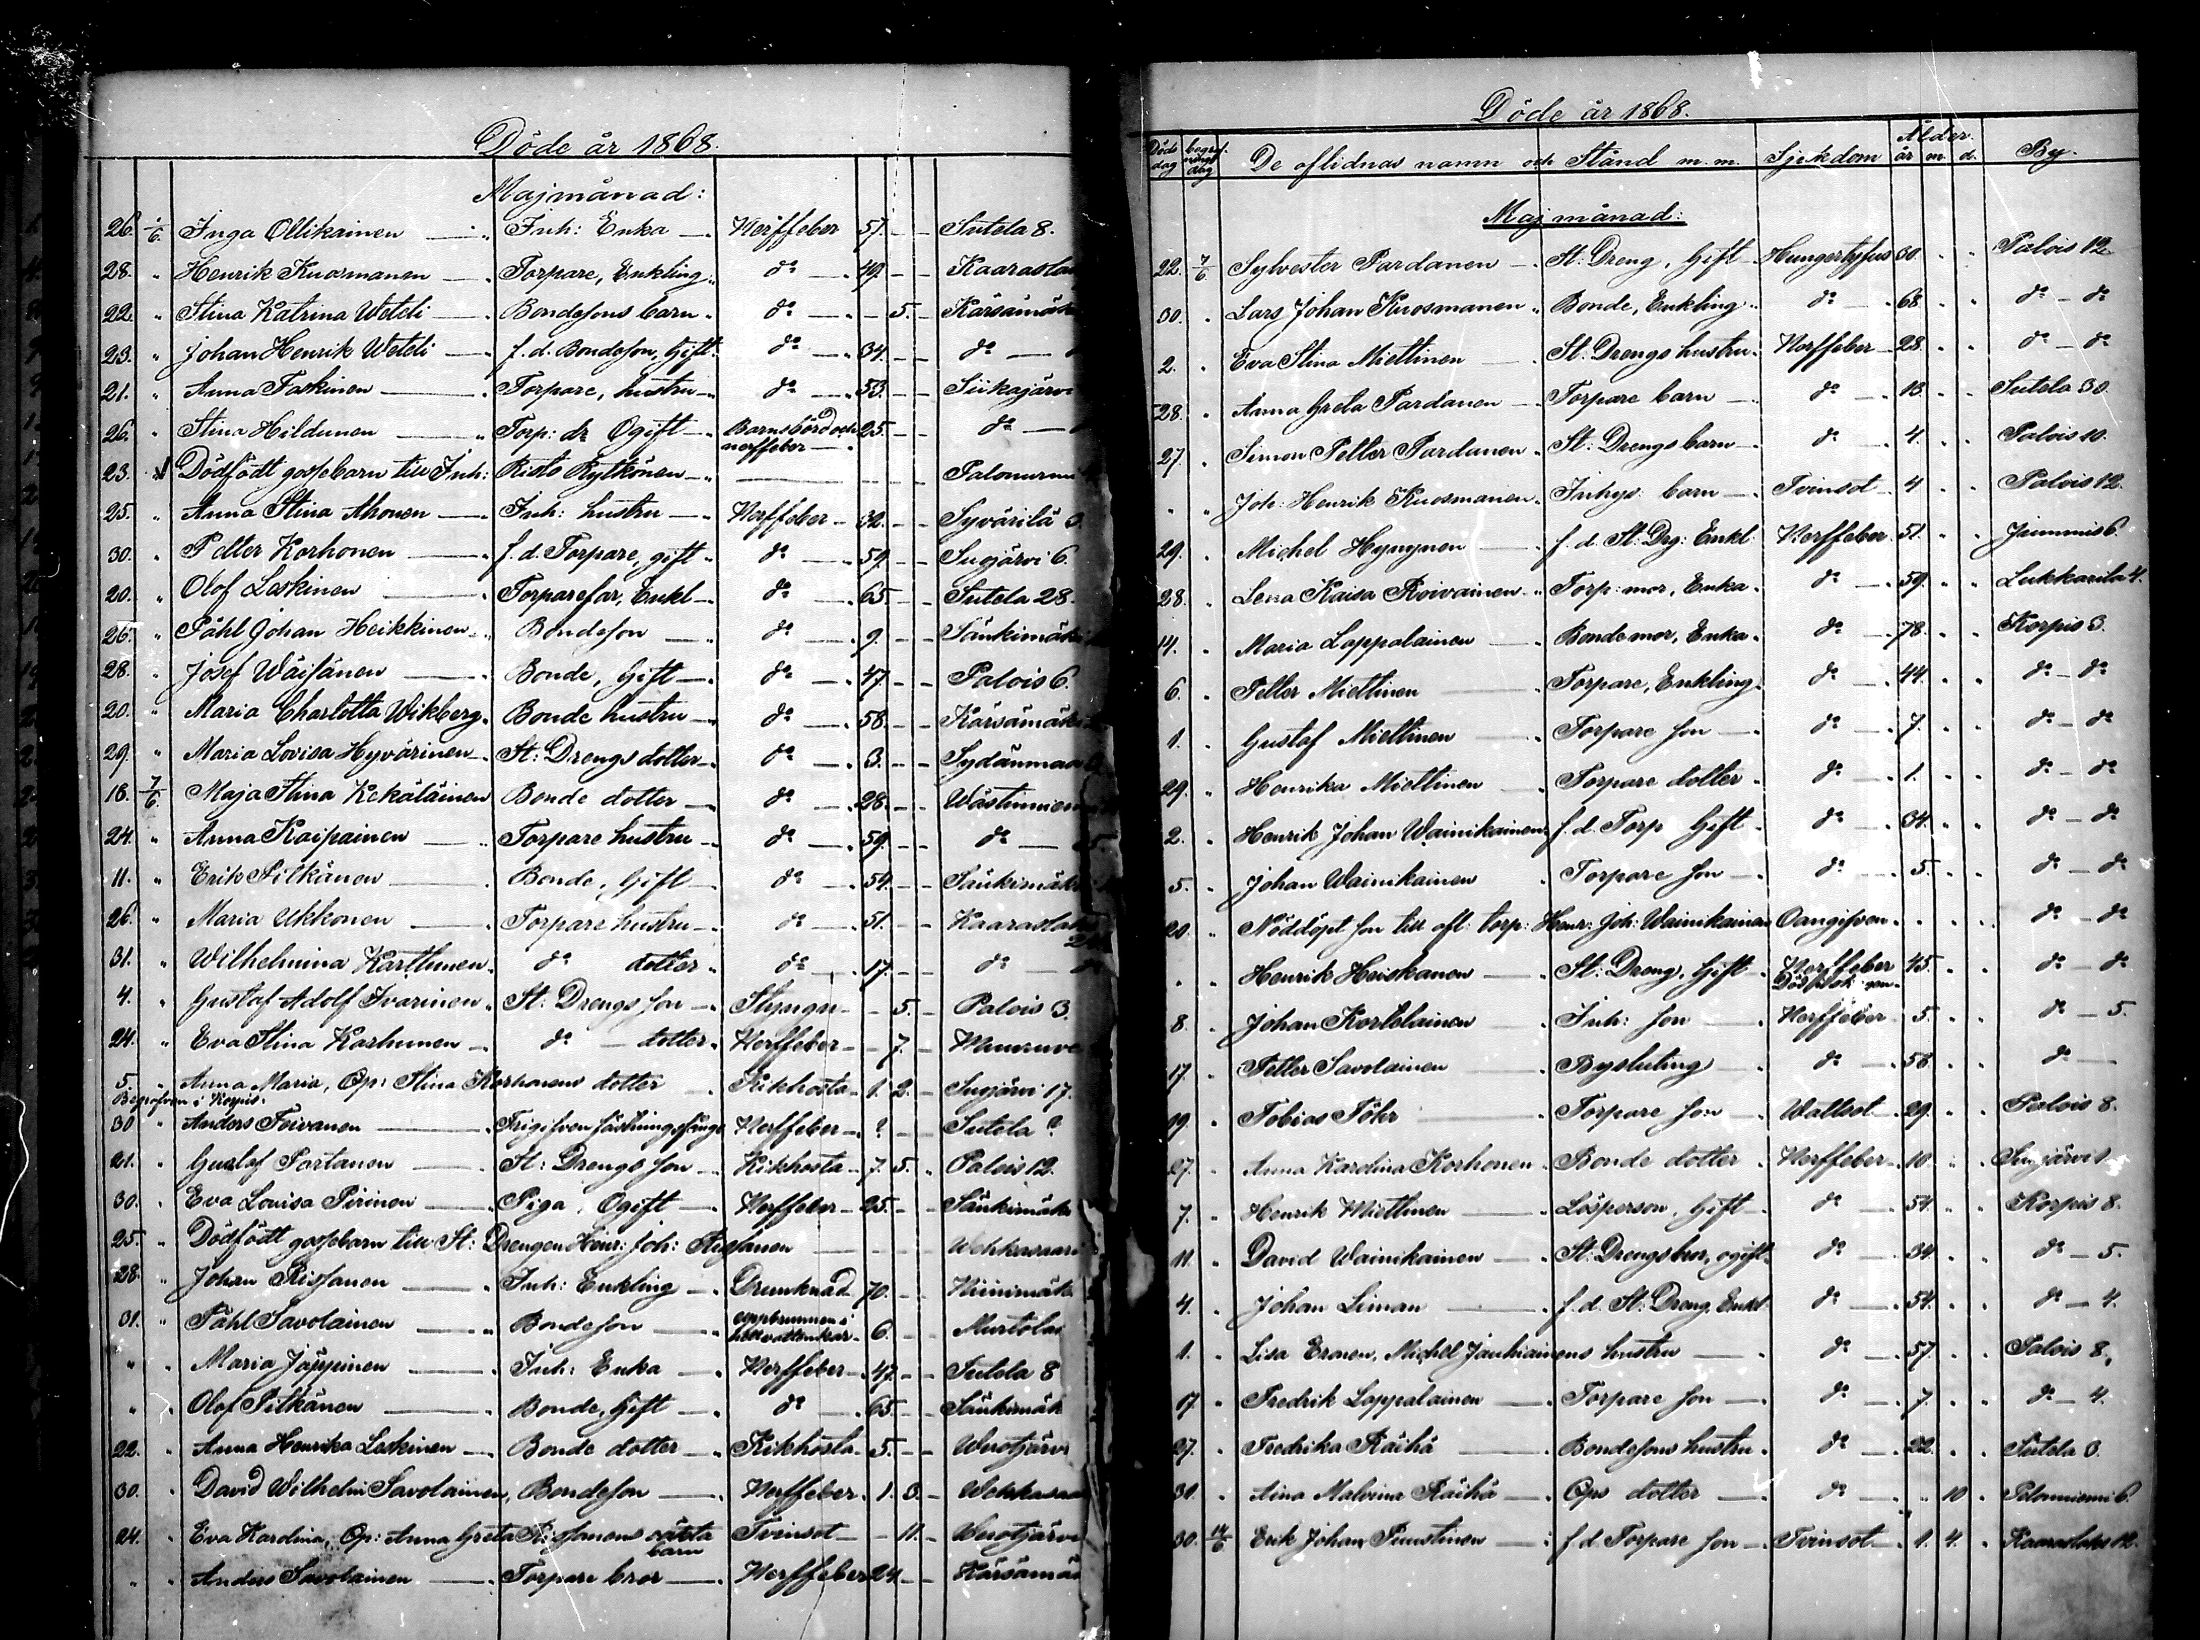 Döde år 1868.
Majmånad:
26. 1/6 Inga Ollikainen Inh: Enka Nerffeber 57. Sutela 8.
28. " Henrik Kuosmanen Torpare, Enkling do 49.
22. " Stina Katrina Weteli Bondesons barn do 5.
23. " Johan Henrik Weteli f. d. Bondeson, Gift do 34. do
21. " Anna Taskinen Torpare, hustru do 53. Siikajärvi
26. " Stina Hildunen Torp: dr Ogift Barnsbörd och 25. do
nerffeber
23. Dödfödt gossebarn till Inh: Risto Rytkönen
25. " Anna Stina Ahonen Inh: hustru Nerffeber 32. Syvärilä 3
30. " Petter Korhonen f. d. Torpare, gift do 59. Sugjärvi 6.
20. " Olof Leskinen Torparefar, Enkl do 65. Sutela 28.
26. " Påhl Johan Heikkinen Bondeson do 9. Sänkimäki
28. " Josef Wäisänen Bonde, Gift do 47. Palois 6.
20. " Maria Charlotta Wikberg Bonde hustru do 58.
29. " Maria Lovisa Hyvärinen St: Drengs dotter do 3. Sydänmaa
18. 7/6 Maja Stina Kekäläinen Bonde dotter do 28.
24. " Anna Kaipainen Torpare hustru do 59. do
11. " Erik Pitkänen Bonde, Gift do 54.
26. " Maria Ukkonen Torpare hustru do 51.
31. " Wilhelmina Karttunen do dotter do 17. do
4. " Gustaf Adolf Ivarinen St: Drengs son Styngn 5. Palois 3.
24. " Eva Stina Karhunen do dotter Nerffeber 7.
5. " Anna Maria, Op: Stina Korhonens dotter Kikhosta 1. 2. Sugjärvi 17.
Begrafven i Korpis.
30 " Anders Toivanen Frigifven fästningsfånge Nerffeber ? Sutela ?
21. " Gustaf Partanen St: Drengs son Kikhosta 7. 5. Palois 12.
30. " Eva Lovisa Pirinen Piga, Ogift Nerffeber 25.
25. " Dödfödt gossebarn till St: Drengen Henr: Joh: Rissanen
28. " Johan Rissanen Inh: Enkling Drunknad 70.
31. " Påhl Savolainen Bondeson 6.
" " Maria Jäppinen Inh: Enka Nerffeber 47. Sutela 8
" " Olof Pitkänen Bonde, Gift do 65.
22. " Anna Henrika Leskinen Bonde dotter Kikhosta 5.
30. " David Wilhelm Savolainen, Bondeson Nerffeber 1. 3.
24. " Eva Karolina, Op: Anna Greta Rissanens oäkta Tvinsot 11.
barn
" " Anders Savolainen Torpare bror Nerffeber 24.
Döde år 1868.
Döds dag begrafnings dag De aflidnas namn och Stånd m. m. Sjukdom Ålder år m. d. By.
Maj månad:
22. 7/6 Sylvester Pardanen St: Dreng, Gift Hungertyfus 30. Palois 12
30. " Lars Johan Kuosmanen Bonde, Enkling do 68. do do
2. " Eva Stina Miettinen St: Drengs hustru Nerffeber 28. do do
28. " Anna Greta Pardanen Torpare barn do 13. Sutela 30.
27. " Simon Petter Pardanen St: Drengs barn do 4. Palois 10.
" " Joh: Henrik Kuosmanen Inhys barn Tvinsot 4 Palois 12.
29. " Michel Hynynen f. d. St: Drg: Enkl Nerffeber 51.
28. " Lena Kaisa Roivainen Torp: mor, Enka do 59. Lukkarila 4.
14. " Maria Lappalainen Bondemor, Enka do 78. Korpis 3.
6. " Petter Miettinen Torpare, Enkling do 44. do do
1. " Gustaf Miettinen Torpare son do 7. do do
29. " Henrika Miettinen Torpare dotter do 1. do do
2. " Henrik Johan Wainikainen f. d. Torp Gift do 34. do do
5. " Johan Wainikainen Torpare son do 5. do do
20. " Nöddöpt son till afl: torp: Henr: Joh: Wainikainen Oangifven do do
" " Henrik Huiskanen St: Dreng, Gift Nerffeber 45. do do
8. " Johan Kortelainen Inh: son Nerffeber 5. do 5.
17. " Petter Savolainen Bysluting do 58. do
19. " Tobias Föhr Torpare son Wattsot 29. Palois 8.
27. " Anna Karolina Korhonen Bonde dotter Nerffeber 10
7. " Henrik Miettinen Lösperson, Gift do 54. Korpis 8.
11. " David Wainikainen St: Drengsbror, ogift do 34. do 5.
4. " Johan Liman f. d. St: Dreng Enkl do 54. do 4.
1. " Lisa Eronen, Michel Jauhiainens hustru do 57. Palois 8,
17 " Fredrik Lappalainen Torpare son do 7. do 4.
27. " Fredrika Räihä Bondesons hustru do 22. Sutela 3.
31. " Aina Malvina Räihä Ops dotter do 10
30. 14/6 Erik Johan Puustinen f. d. Torpare son Tvinsot 1. 4. Kaaraslaks 12.